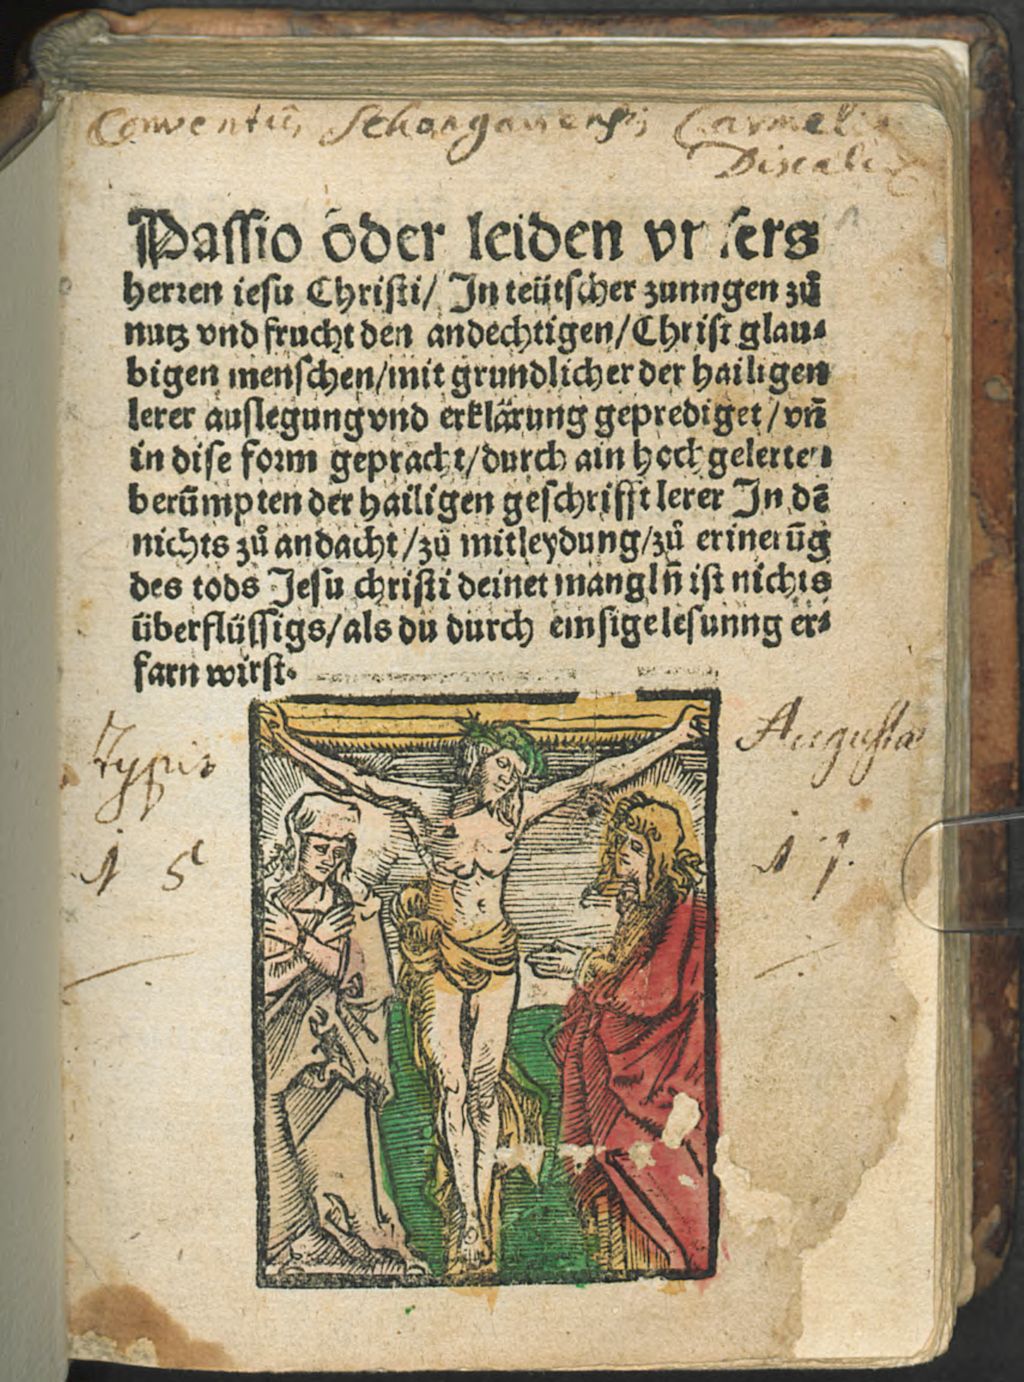 Conventus Schongauensis Carmelit
Discalc
Passio oder leiden vnsers
herren iesu Christi/ In teütscher zunngen zů
nutz vnd frucht den andechtigen/Christ glau⸗
bigen menschen/mit grundlicher der hailigen
lerer auslegung vnd erklärung geprediget/vñ
in dise form gepracht/durch ain hochgelerten
berümpten der hailigen geschrifft lerer In dē
nichts zů andacht/zů mitleydung/zů erinerūg
des tods Jesu christi deinet mangln̄ ist nichts
überflüssigs/als du durch emsige lesunng er⸗
farn wirst.
Typis Augusta
15 17.